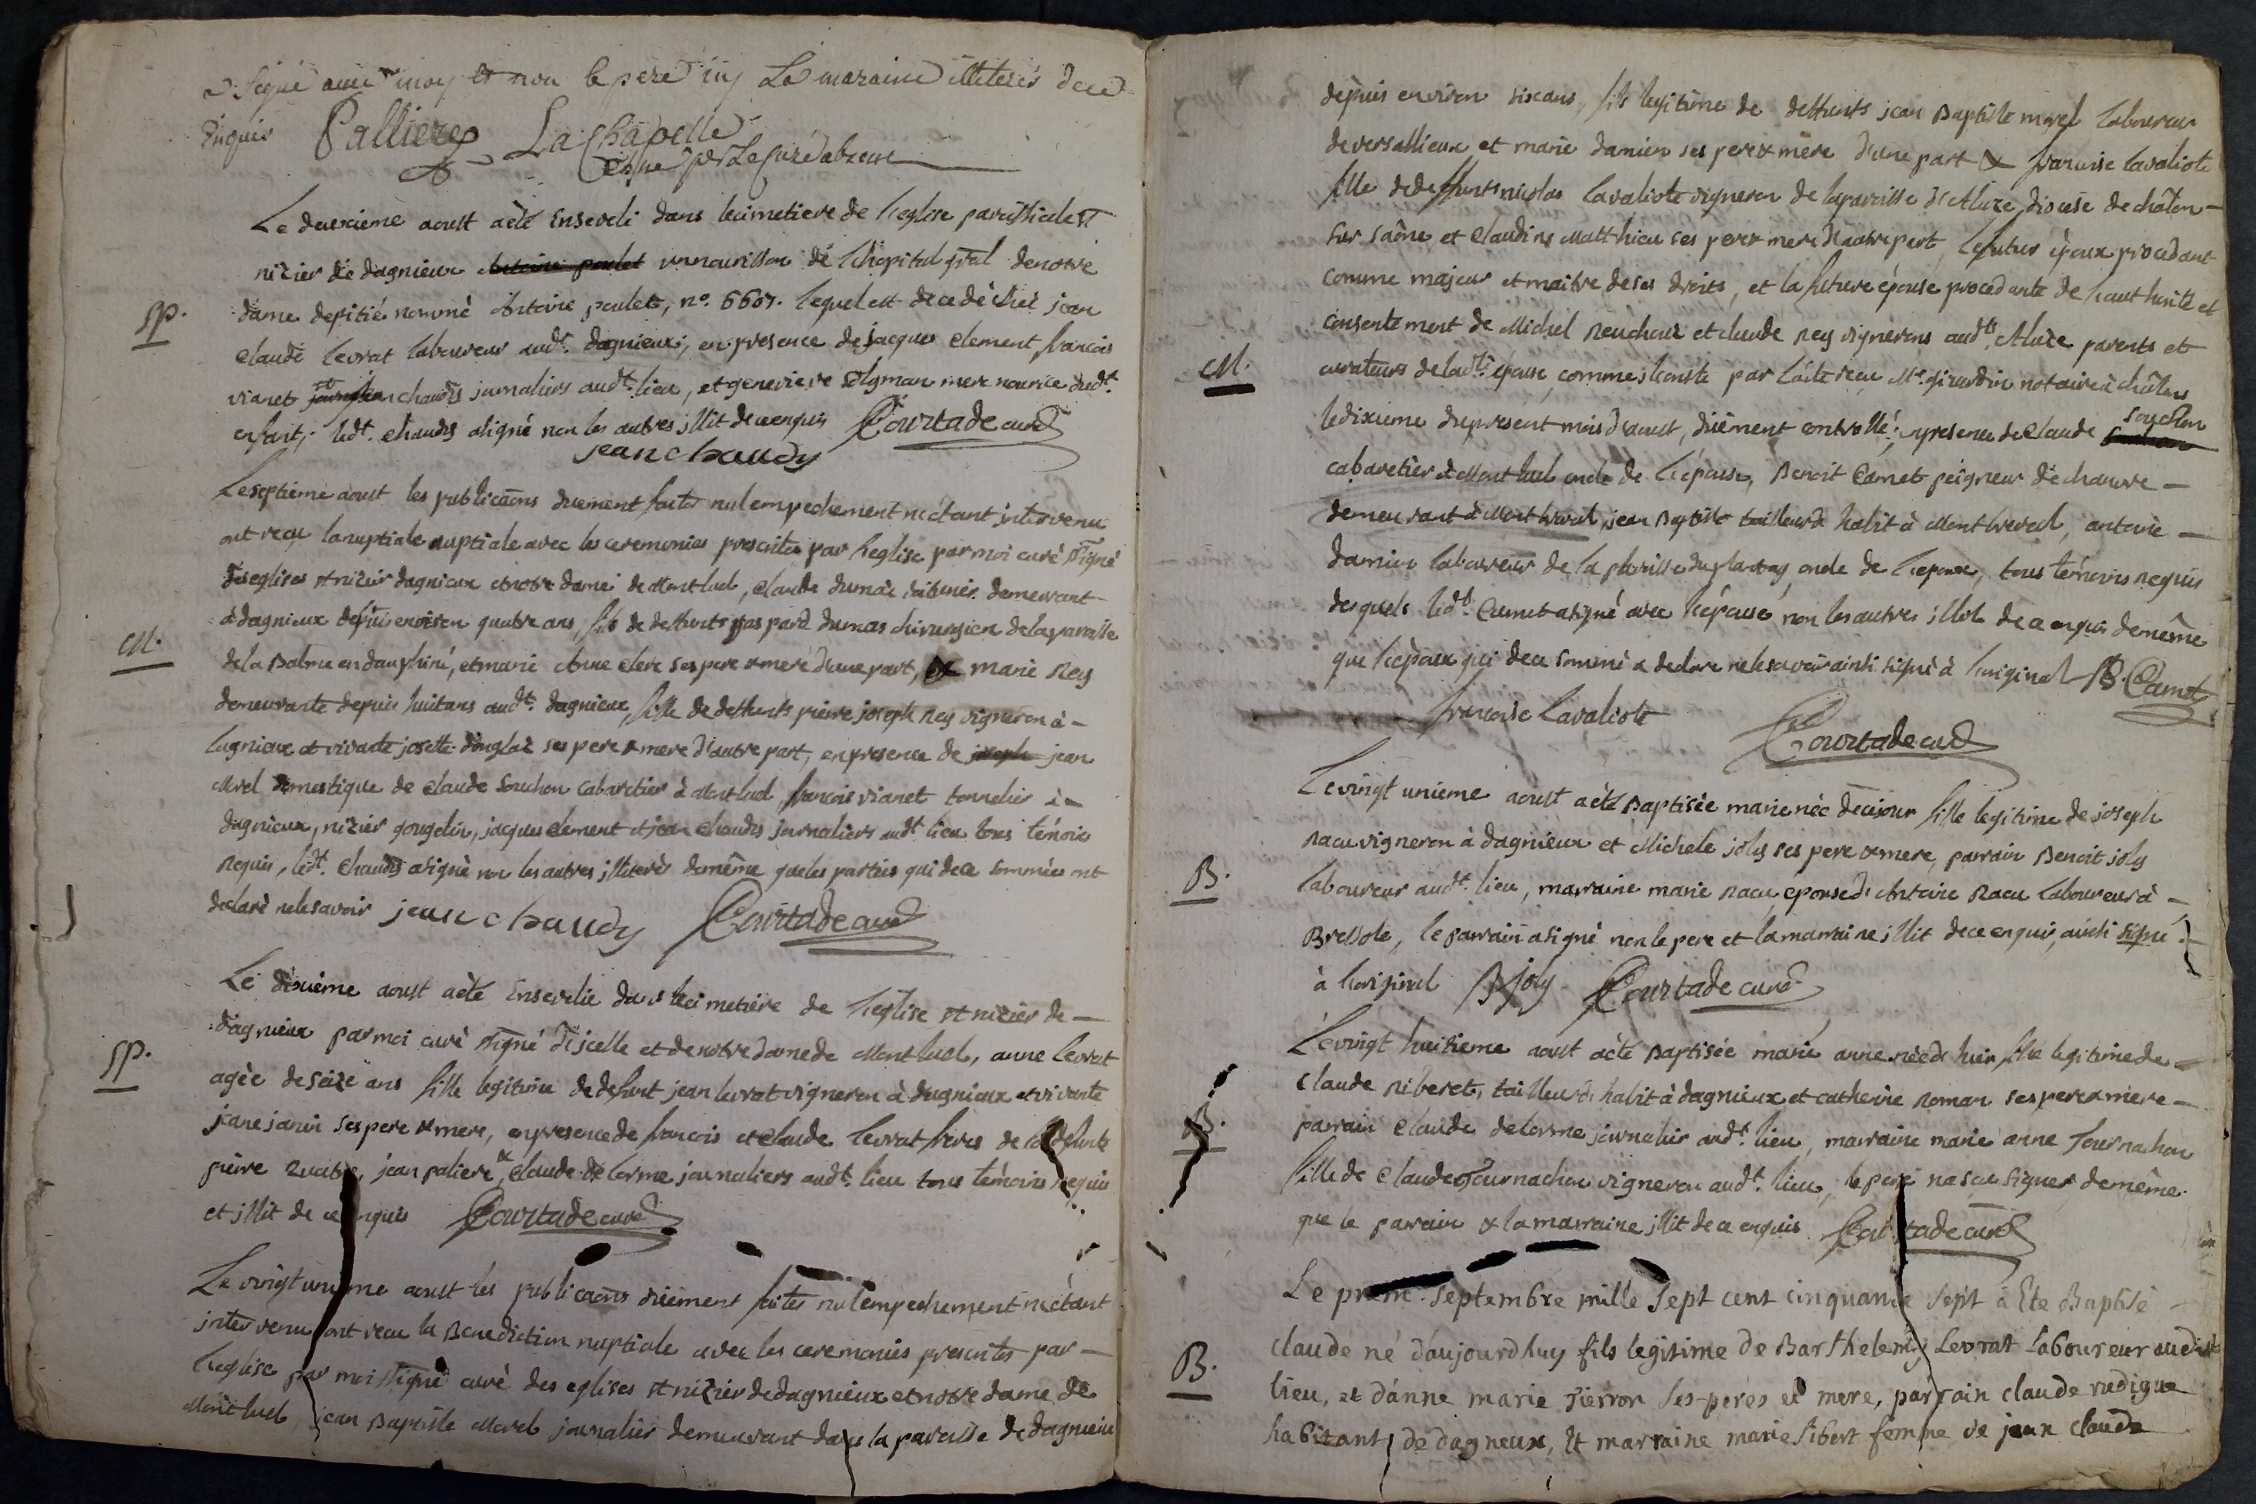 a signé avec moy et non le pere ny La maraine illeterés de ce
Enquis Pallieres La Chapelle
par Le Curé
Le deuxieme aoust a èté Enseveli dans le cimetiere de l'eglise paroissiale st
nizier de dagnieux Antoine poulet un nourisson de l'hopital gñal de notre
sp. dame de pitié nommé Antoine poulet, n°. 6607. lequel est decedé chéz jean
claude levrat laboureur aud.t dagnieux, en presence de jacques clement francois
vianet et jean chaudy journaliers aud.t lieu, et genevieve mere nourice dud.t
enfant, led.t chaudy a signé non les autres illit de ce enquis Courtade curé
jean chaudy
Le septieme aoust les publicaõns duement faites nul empechement n'ètant intervenu
ont recu la nuptiale nuptiale avec les ceremonies prescrites par l'eglise par moi curé ssigné
des eglises st nizier dagnieux et notre dame de Mont luel, claude dumas demeurant
à dagnieux depuis environ quatre ans fils de deffunts gaspard dumas chirurgien de la paroisse
M. de la Balme en dauphiné, et marie Anne clere ses pere & mere d'une part, & marie Rey
demeurante depuis huit ans aud.t dagnieux, fille de deffunts pierre joseph Rey vigneron à
lagnieux et vivante josette ses pere & mere d'autre part, en presence de joseph jean
Morel domestique de claude souchon cabaretier à Mont luel, francois vianet tonnelier à
dagnieux, nizier gougelin, jacques clement et jean chaudy journaliers aud.t lieu tous temoins
requis, led.t chaudy a signé non les autres illiterés de même que les parties qui de ce sommées ont
declaré ne le savoir jean chaudy Courtade curé
Le dixième aoust a èté Ensevelie dans le cimetière de l'eglise st nizier de
dagnieux par moi curé ssigné d'icelle et de notre dame de Mont luel, anne levrat
sp. agèe de seize ans fille legitime de defunt jean levrat vigneron à dagnieux et vivante
jane janin ses pere & mere, en presence de francois et claude levrat freres de la defunte
pierre jean paliere, & claude delorme journaliers aud.t lieu tous temoins requis
et illit de ce enquis Courtade curé
Le vingt unieme aoust les publicaõns duement faites nul empechement n'ètant
intervenu ont recu la Benediction nuptiale avec les ceremonies prescrites par
l'eglise par moi ssigné curé des eglises st nizier de dagnieux et notre dame de
Mont luel, jean Baptiste Morel journalier demeurant dans la paroisse de dagnieux
depuis environ six ans, fils legitime de deffunts jean Baptiste morel laboureur
de versallieux et marie damien ses pere & mère d'une part & francoise lavaliote
fille de deffunts nicolas lavaliote vigneron de la paroisse d'Aluze diocèse de châlon
sur saône et claudine Matthieu ses pere & mere d'autre part, le futur èpoux procedant
comme majeur et maitre de ses droits, et la future épouse procedante de l'authorité et
consentement de Michel et claude Rey vignerons aud.t Aluze parents et
M. curateurs de lad.te épouse, comme il conste par l'acte recu M.e girardin notaire à châlons
le dixieme du present mois d'aoust, duement controllé; en presence de claude souchon
cabaretier à Mont luel oncle de l'épouse, Benoit Camet peigneur de chanvre
demeurant à Mont luel, jean Baptiste tailleur d'habit à Mont luel, antoine
damien laboureur de la paroisse du plantay, oncle de l'epoux, tous témoins requis
desquels led.t Camet a signé avec l'épouse non les autres illit de ce enquis de même
que l'èpoux qui de ce sommé a declaré ne le savoir ainsi signé à l'original B. Camet
francoise Lavaliote Courtade curé
Le vingt unieme aoust a èté Baptisée marie née de ce jour fille legitime de joseph
Racu vigneron à dagnieux et Michele joly ses pere & mere, parrain Benoit joly
B. laboureur aud.t lieu, marraine marie Racu epouse d'Antoine Racu laboureur à
Bressole, le parrain a signé non le pere et la marraine illit de ce enquis, ainsi signé
à l'original B joly Courtade curé
Le vingt huitieme aoust a èté Baptisée marie anne née d'hier fille legitime de
claude Riberet, tailleur d'habit à dagnieux et catherine Roman ses pere & mere
B. parrain claude delorme journalier aud.t lieu, marraine marie anne Tournachon
fille de claude Tournachon vigneron aud.t lieu, le pere na scu signer de même
que le parrain & la marraine illit de ce enquis Courtade curé
Le prem.r septembre mille sept cent cinquante sept à Eté Baptisé
claude né d'aujourdhuy fils legitime de Barthelemy Levrat Laboureur audit
B. lieu, et d'anne marie Pierron ses peres et mere, parrain claude rudigue
habitant de dagneux, Et marraine marie sibert femme de jean claude